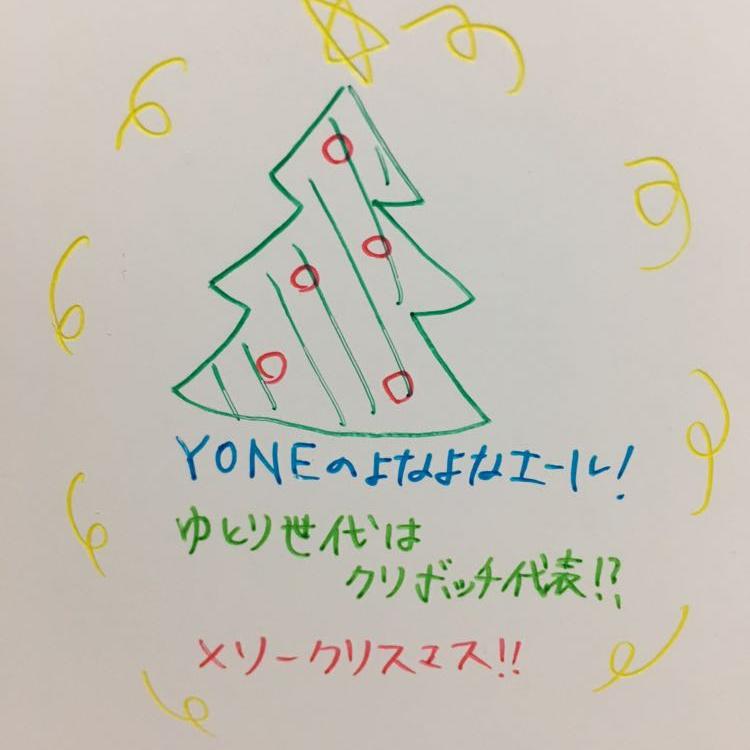 YONEのよなよなエール!
ゆとり世代は
クリボッチ代表!?
メリークリスマス!!